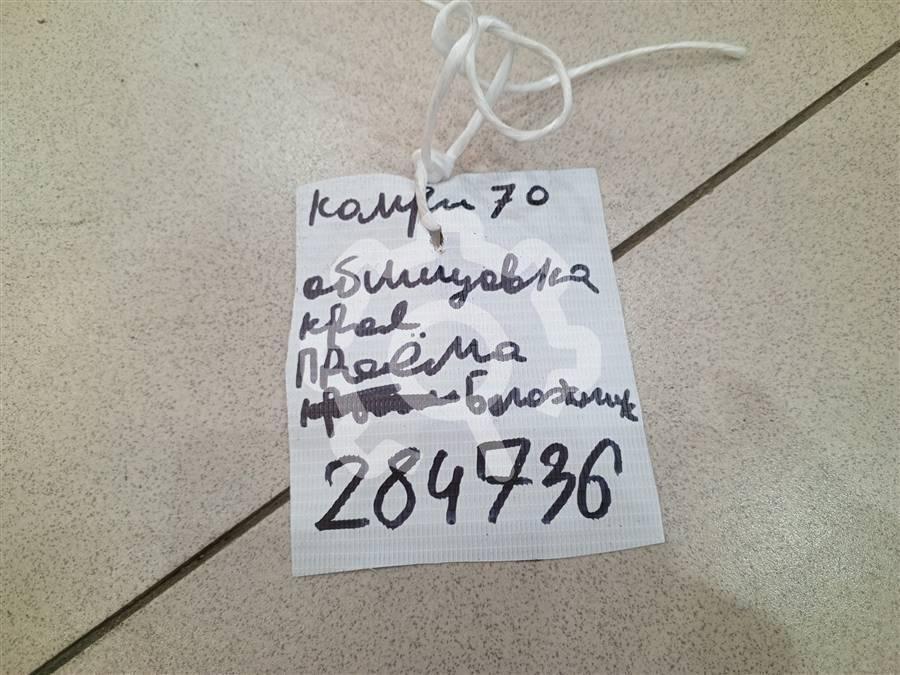 камри 70
облицовка
края
проёма
багажник
284736